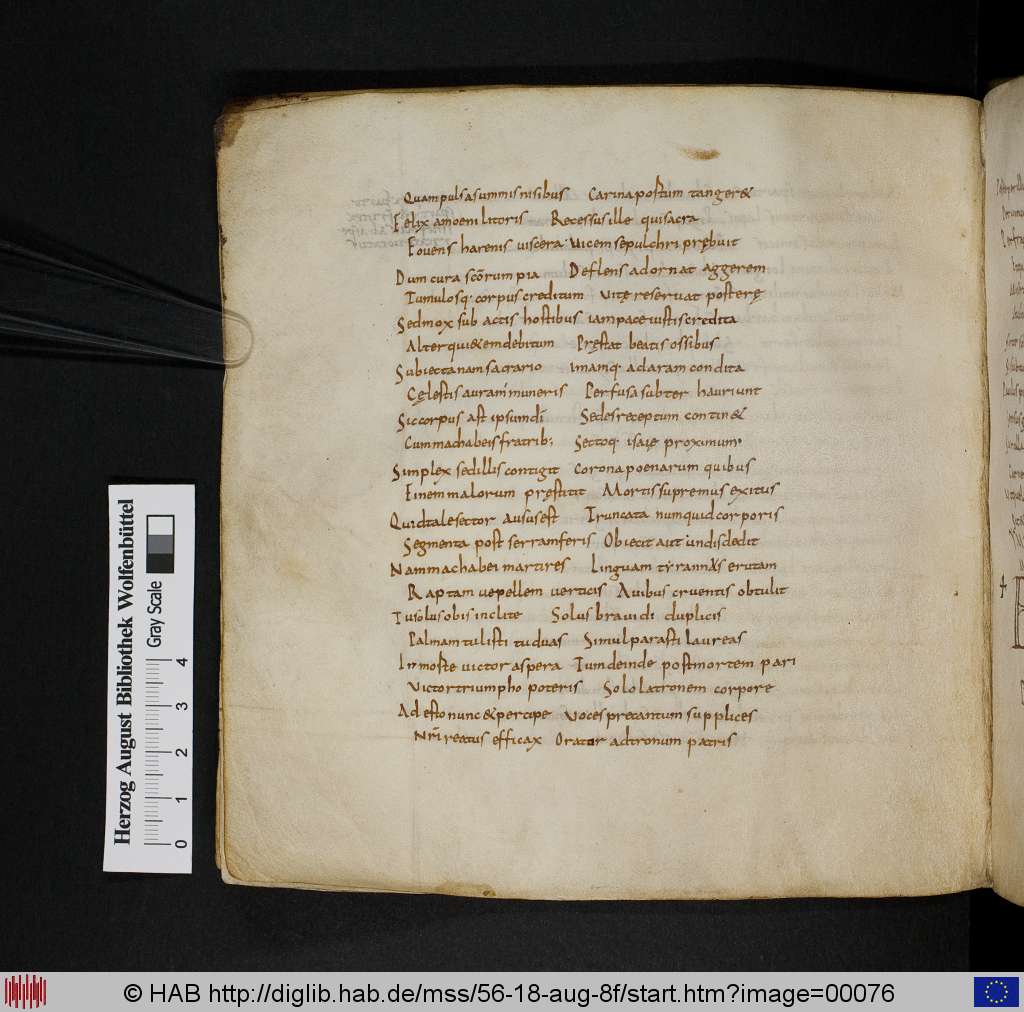 Quam pulsa summis nisibus Carina postum tanger&
Felix amoeni litoris Recessus ille qui sacra
Fouens harenis viscera Vicem sepulchri prębuit
Dum cura scōrum pia Deflens adornat aggerem
Tumulosq; corpus creditum Vitę reservat posterę
Sed mox subactis hostibus iam pace iustis credita
Alter qui&em debitum Pręstat beatis ossibus
Subiecta nam sacrario imamq; ad aram condita
Cęlestis auram muneris Perfusa subter hauriunt
Sic corpus ast ipsum dī Sedes receptum contin&
Cum machabeis fratrib; Sectoq; isaię proximum
Simplex sed illis contigit Corona poenarum quibus
Finem malorum pręstitit Mortis supremus exitus
Quid tale sector ausus est Truncata numquid corporis
Segmenta post serram feris Obiecit aut undis dedit
Nam machabei martires Linguam tyrannus erutam
Raptam ue pellem uerticis Avibus cruentis obtulit
Tu solus obis inclite Solus brauii di duplicis
Palmam tulisti tu duas Simul parasti laureas
In morte uictor aspera Tum deinde post mortem pari
Victor triumpho poteris Solo latronem corpore
Adesto nunc & percipe Voces precantum supplices
Nrī reatus efficax Orator ad tronum patris
Herzog August Bibliothek Wolfenbüttel
Gray Scale
0 1 2 3 4
© HAB http://diglib.hab.de/mss/56-18-aug-8f/start.htm?image=00076